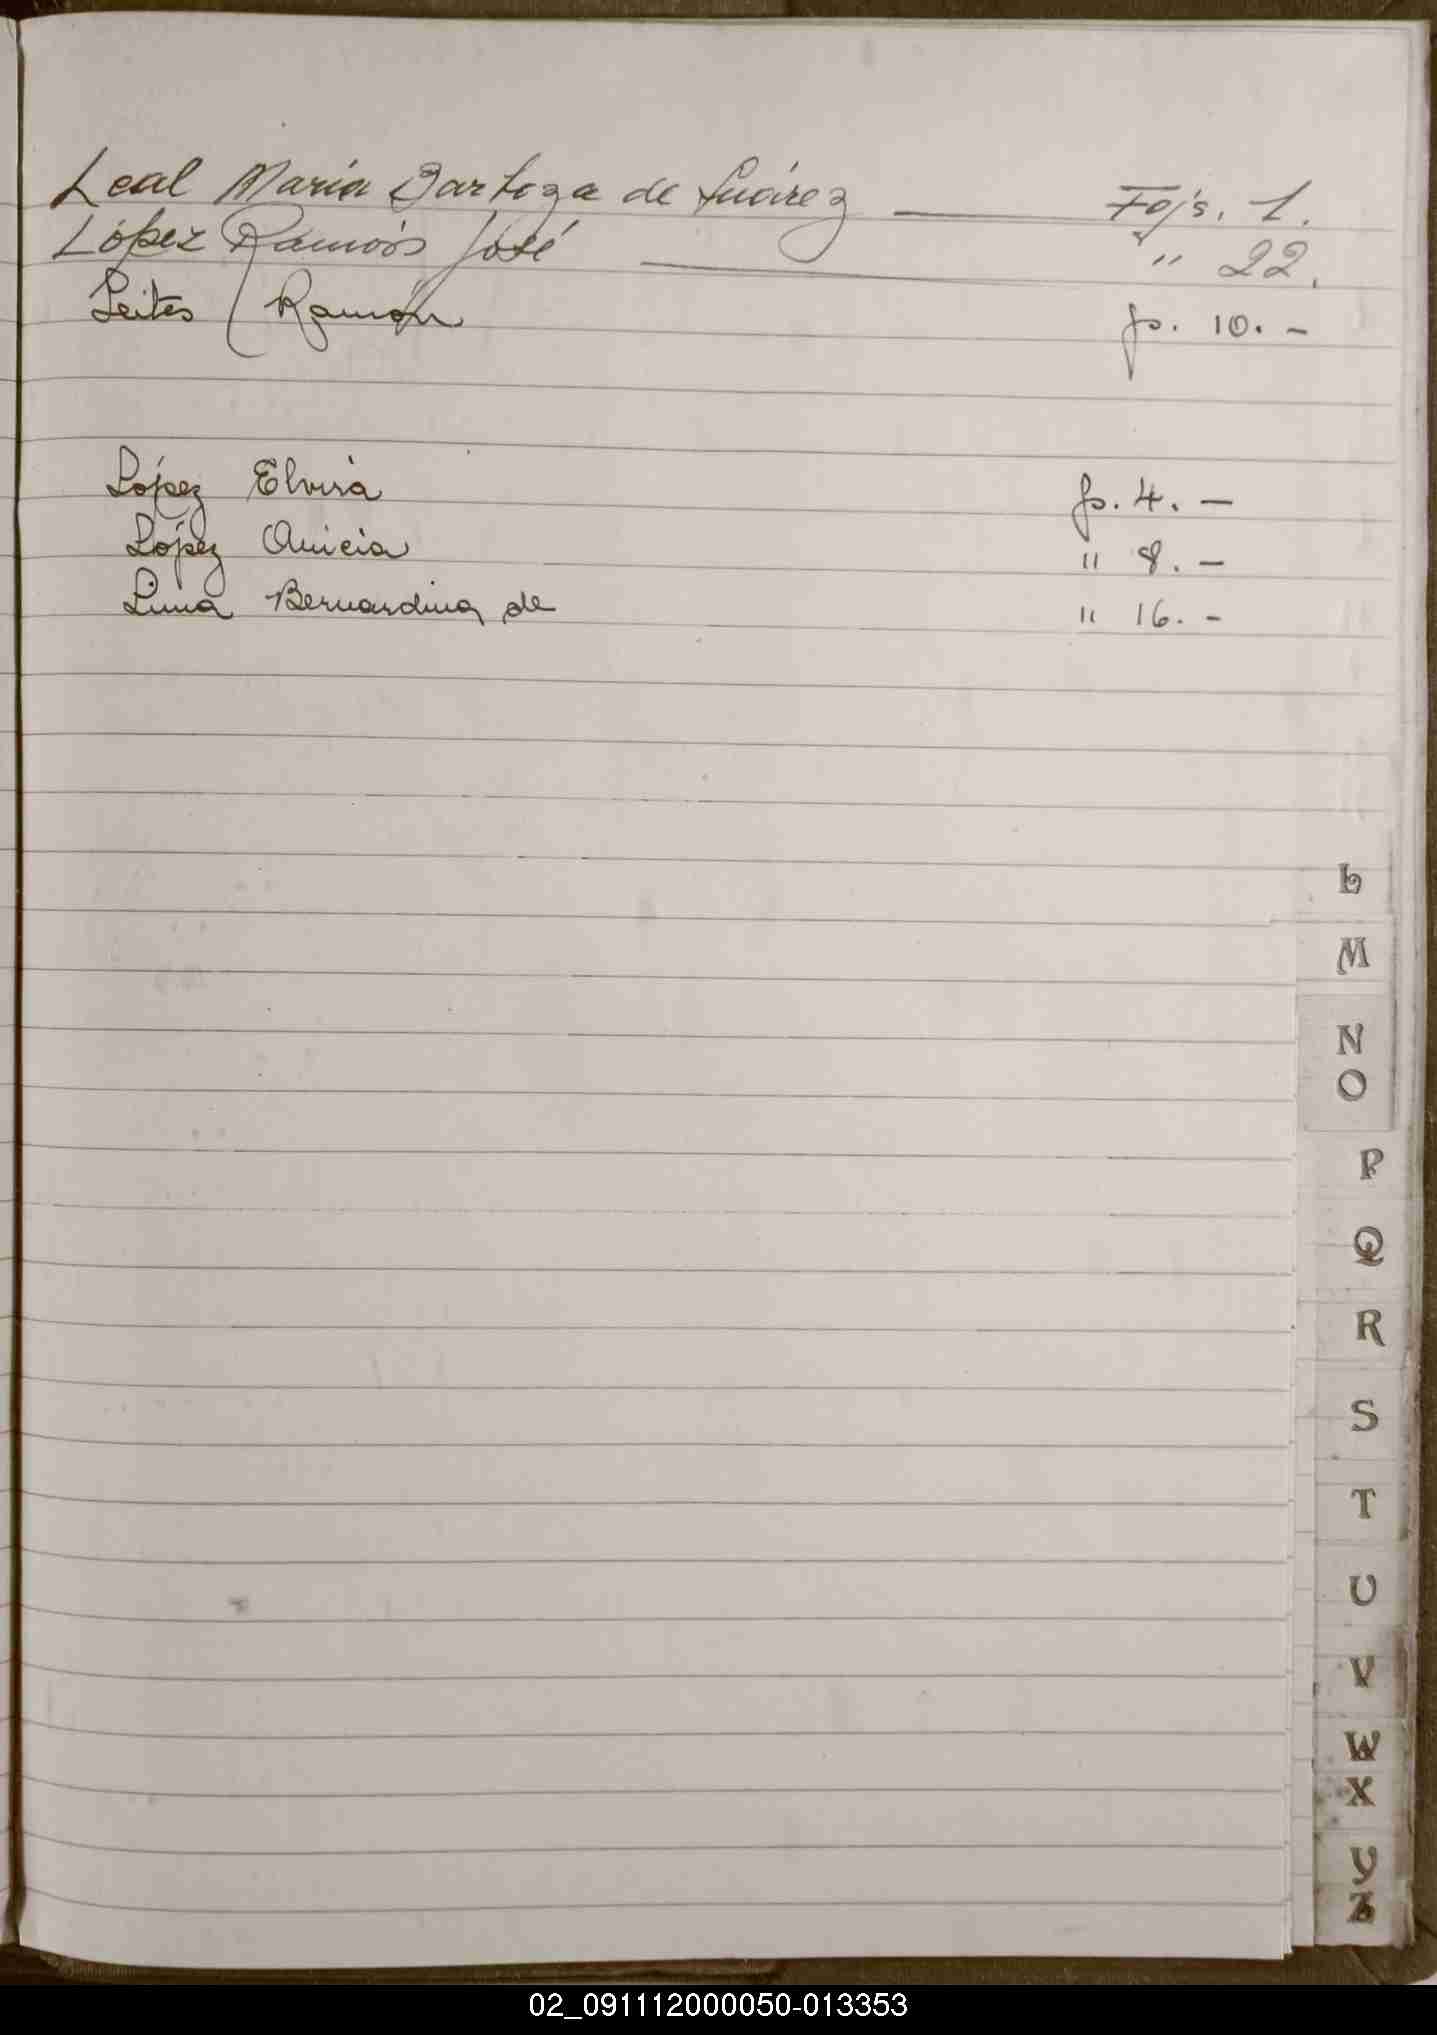 Leal Maria Bartoza de Suárez Fojs. 1.
López Ramón José " 22.
Leites Ramón fs. 10. -
López Elvira fs. 4. -
López Anicia " 8. -
Luna Bernardina de " 16. -
L
M
N
O
P
Q
R
S
T
U
V
W
X
Y
Z
02_091112000050-013353